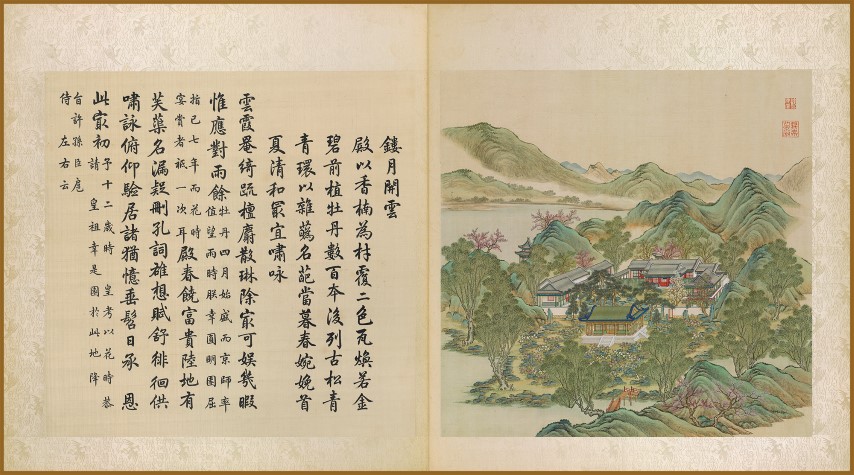 鏤月開雲
殿以香楠為材覆二色瓦煥若金
碧前植牡丹數百本後列古松青
青環以雜蘤名葩當暮春婉娩首
夏清和最宜嘯咏
雲霞罨綺疏檀麝散琳除最可娛幾暇
惟應對雨餘
牡丹四月始盛而京師率
值望雨時朕幸圓明園屈
指已七年而花時
宴賞者祗一次耳
殿春饒富貴陸地有
芙蕖名漏疑刪孔詞雄想賦舒徘徊供
嘯詠俯仰驗居諸猶憶垂髫日承恩
此最初
予十二歲時皇考以花時恭
請皇祖幸是園於此地降
旨許孫臣扈
侍左右云